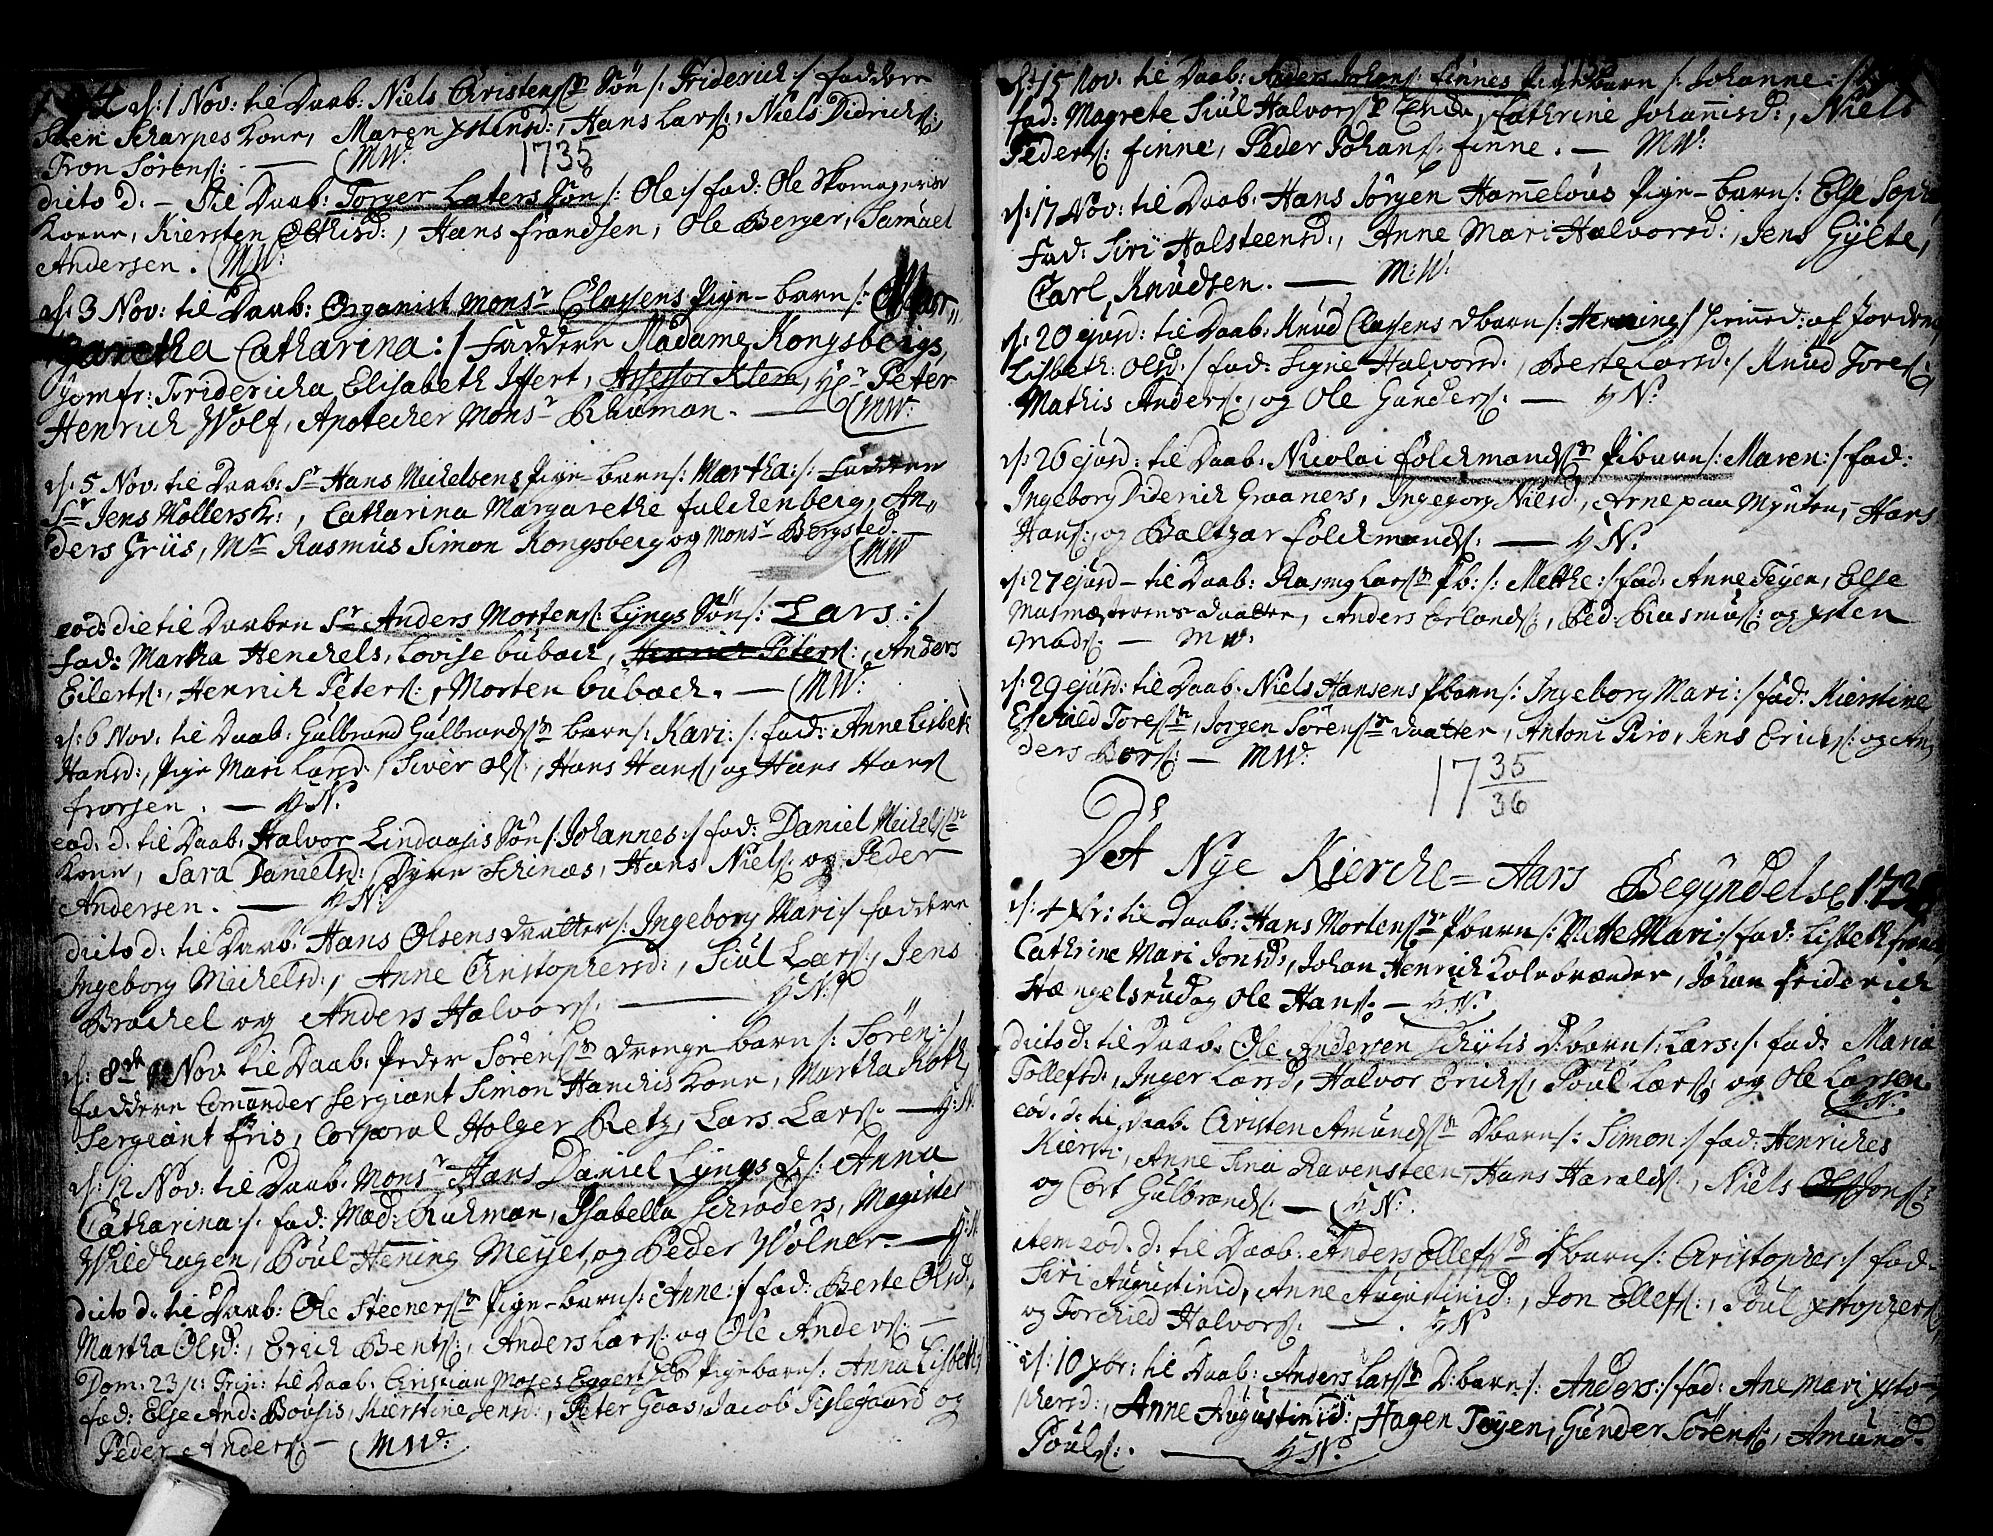 d: 1 Nov: til Daab: Niels Christens: Søn /: Friderich :/ faddere
Skarpes Kone, Maren xstensd:, Hans Lars:, Niels Didrichs:
Tron Sørens: — MW:
1735
dicto d. — til Daab: Torger Laters Søn /: Ole :/ fad: Ole Skomagers
Kone, Kiersten, Hans Frandsen, Ole Berger, Samuel
Andersen. MW:
d: 3 Nov: til Daab: Organist Monsr Clasens Pige-barn /: Mar„
garetha Catharina :/ Faddere Madame Kongsbergs,
Jomfr: Fridericha Elisabeth Iffert, Assessor Klem, Hr Peter
Henrich Wolf, Apotecher Monsr Rhuman. — MW:
d: 5 Nov: til Daab: Sr Hans Michelsens Pige-barn /: Martha :/: Faddere
Sr Jens Möllers K:, Catharina Margarethe Falckenberg, An„
ders Grüs, Mr Rasmus Simon Kongsberg og Monsr Bergsted.
MW
eod: die til Daaben Sr Anders Mortens: Lyngs Søn /: Lars :/
fad: Martha Henchels, Lovise Buback, Henrich Peters:, Anders
Eilerts:, Henrich Peters:, Morten Buback. — MW:
d: 6 Nov: til Daab: Gulbrand Gulbrands: barn /: Kari :/: fad: Anne Lisbeth
Hansd:, Pige Mari Larsd, Siver Ols:, Hans Hans, og Hans Hans
frorsen. — HN.
eod: d: til Daab: Halvor Lindaasis Søn /: Johannes :/ fad: Daniel Michels:
Kone, Sara Danielsd:, Dyre Schinæs, Hans Niels: og Peder
Andersen. — HN:
dicto d: til Daab: Hans Olsens daatter /: Ingeborg Mari :/ faddere
Ingeborg Michelsd:, Anne Christophersd:, Siul Lars:, Jens
Brachel og Anders Halvors: — HN:
d: 8de Nov til Daab: Peder Sørens: Drenge barn /: Søren :/
faddere Comander Sergiant Simon Hanchis Kone, Martha Roth,
Sergiant Friis, Corporal Holger Retz, Lars Lars: — H:N
d: 12 Nov: til Daab: Monsr Hans Daniel Lyngs d /: Anna
Catharina :/. fad: Mad: Ruhman, Isabella Schrøders, Magister
Wildhagen, Poul Hening Meyer, og Peder Wölner. — H:N
dicto d: til Daab: Ole Steeners: Pige-barn /: Anne :/ fad: Berte Olsd:,
Martha Olsd:, Erich Bents:, Anders Lars: og Ole Anders: —
Dom: 23 p: Trin: til Daab: Christian Moses Eggertsøs Pigebarn /: Anna Lisbeth
fad: Else And: Bousis, Kierstine Jensd:, Peter Gaas, Jacob Tislegaard og
Peder Anders: — MW:
1735
d: 15 Nov: til Daab: Anders Johans: finnes Pige barn /: Johanne :/
fad: Magrete Siul Halvors: Enke, Cathrine Johannisd:, Niels
Peders: finne, Peder Johans: finne. — MW:
d: 17 Nov: til Daab: Hans Jørgen Hameloüs Pige-barn /: Else Sophi
Fad: Siri Halsteensd:, Anne Mari Halvorsd:, Jens Gylte,
Carl Knudsen. — M:W:
d: 20 ejusd: til Daab: Knud Clasens dbarn /: Henning :/ hiemmed: af Jordem:
Lisbeth: Olsd :/ fad: Signe Halvorsd:, Berte Larsd :/ Knud Tores:,
Mathis Anders:, og Ole Gunders: — HN:
d: 26 ejusd: til Daab: Nicolai Folckmands: Pibarn /: Maren :/ fad:
Ingeborg Diderich Graaners, Ingeborg Nielsd:, Arne paa Mynten, Hans
Hans:, og Baltzar Folckmands: — HN.
d: 27 ejusd — til Daab: Rasmus Lars: Pb: /: Mette :/ fad: Anne Teyen, Else
Matmæsterens daatter, Anders Erlands:, Ped: Rasmus: og xsten
Mads: — MW:
d: 29 ejusd: til Daab: Niels Hansens Pbarn /: Ingeborg Mari :/ fad: Kierstine
Eskild Tores:, Jørgen Sørens: daatter, Antoni Piro, Jens Erics: og An„
ders Bors: — MW:
17 35/36
Det Nye Kierche-Aars Begyndelse 1736
d: 4 xbr: til Daab: Hans Mortens: Pbarn /: Mette Mari :/ fad: Lisbeth
Cathrine Mari Jonsd:, Johan Henrich Kolebrænder, Johan Friderich
Stængelsrud og Ole Hans: — HN.
dicto d: til Daab: Ole Andersen Schytis D:barn /: Lars :/. fad: Maria
Tollefsd:, Inger Larsd, Halvor Erichs:, Poul Lars: og Ole Larsen.
HN.
eod. d: til Daab. Christen Amunds: Dbarn /: Simon :/ fad: Henriches
Kiersti, Anne Sina Ravensteen, Hans Haralds:, Niels Jons:
og Cort Gulbrands: — HN:
item eod. d: til Daab: Anders Ellefs: Dbarn /: Christopher :/ fad:
Siri Augustinid, Anne Augustinid:, Jon Ellefs:, Poul xstophers:
og Torchild Halvors: — HN
d: 10 xbr: til Daab: Anders Lars: D:barn /: Anders :/ fad: Ane Mari xsto-
phersd:, Anne Augustinid:, Hagen Tøyen, Gunder Sørens:, Amund
Pouls: — HN.